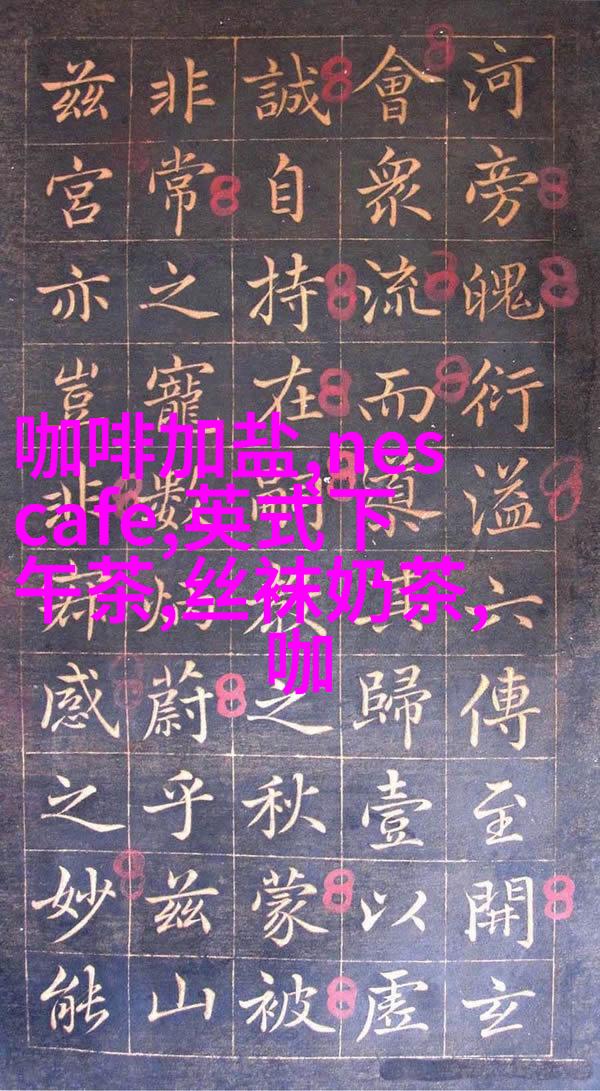 咖啡加盐,nes
cafe,英式下
午茶,丝袜奶茶,
咖
河旁魄衍溢六傳至開玄
會衆流而其歸壹以虛
誠自持在嗣教之秋蒙被
非常之寵數蔚乎兹山
兹宮亦豈非群感之妙能